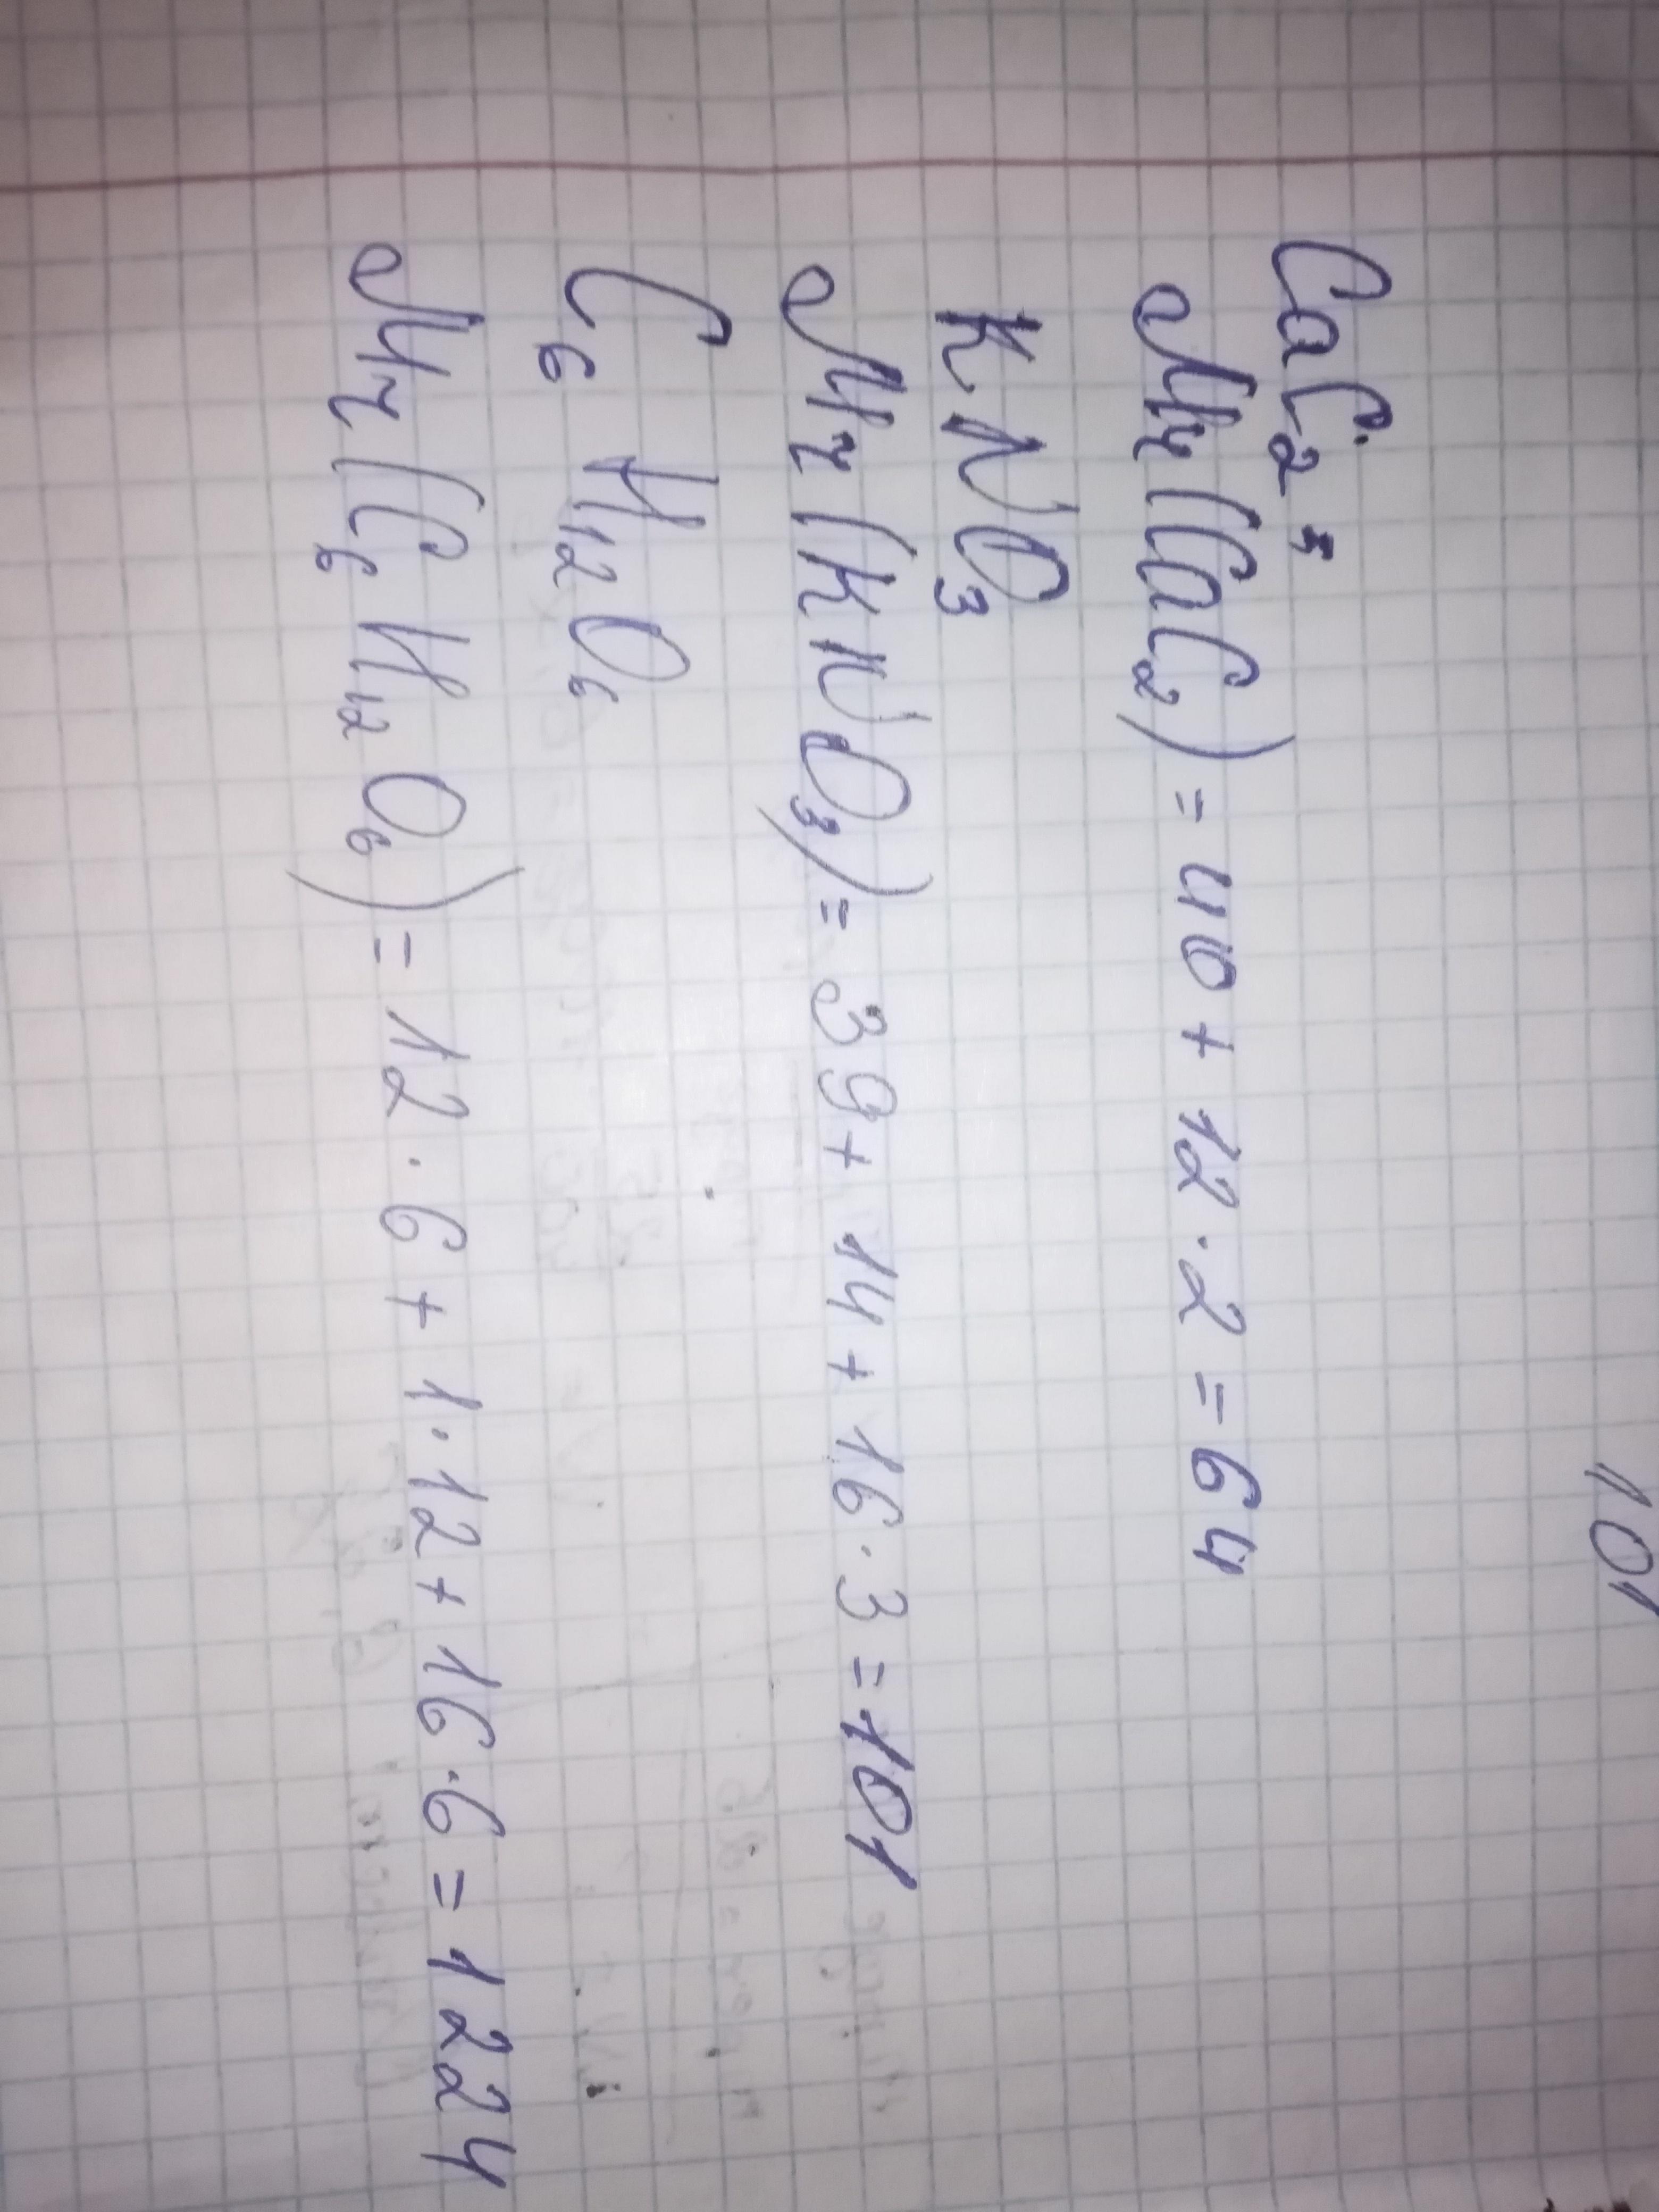 101
CaC₂
Mr(CaC₂) = 40 + 12 · 2 = 64
KNO₃
Mr(KNO₃) = 39 + 14 + 16 · 3 = 101
C₆H₁₂O₆
Mr(C₆H₁₂O₆) = 12 · 6 + 1 · 12 + 16 · 6 = 1224